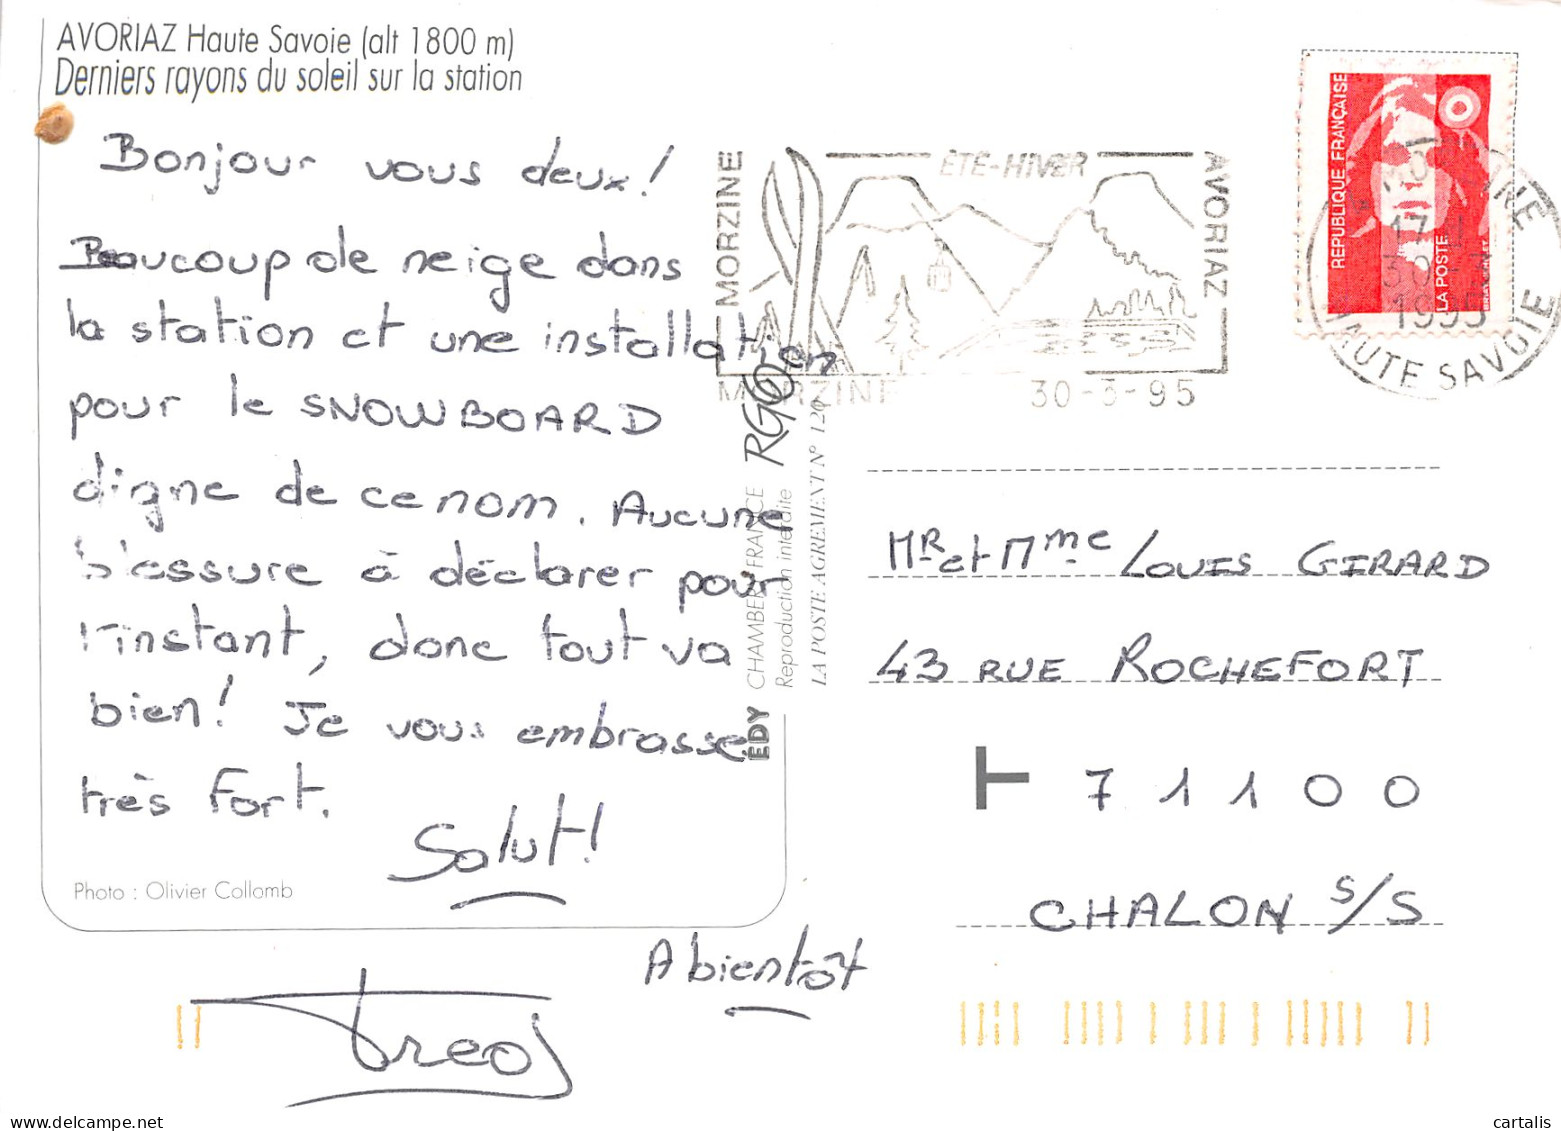 AVORIAZ Haute Savoie (alt 1800 m)
Derniers rayons du soleil sur la station
Bonjour vous deux!
Beaucoup de neige dans
la station et une installation
pour le SNOWBOARD
digne de ce nom. Aucune
blessure à déclarer pour
l'instant, donc tout va
bien! Je vous embrasse
très fort.
Salut!
Photo : Olivier Collomb
A bientôt
EDY CHAMBERY FRANCE
Reproduction interdite
LA POSTE AGREMENT N° 120
MORZINE
ÉTÉ-HIVER
AVORIAZ
MORZINE 30-3-95
REPUBLIQUE FRANÇAISE
LA POSTE
17 H
30-3
1995
HAUTE SAVOIE
Mr et Mme Louis GIRARD
43 RUE ROCHEFORT
T 71100
CHALON S/S
cartalis